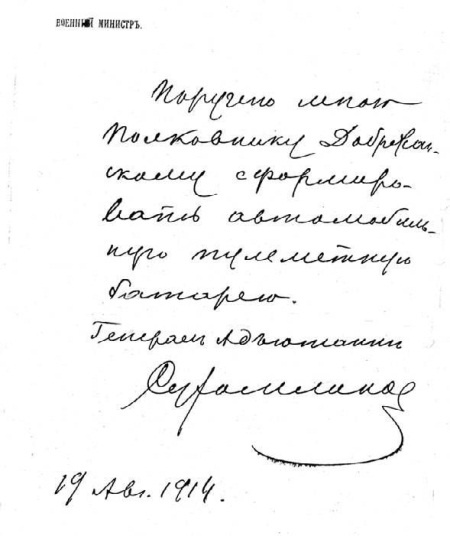 ВОЕННЫЙ МИНИСТРЪ.
Поручено мною
Полковнику Добржан-
скому сформиро-
вать автомобиль-
ную пулеметную
батарею.
Генерал Адъютантъ
Сухомлинов
19 Авг. 1914.